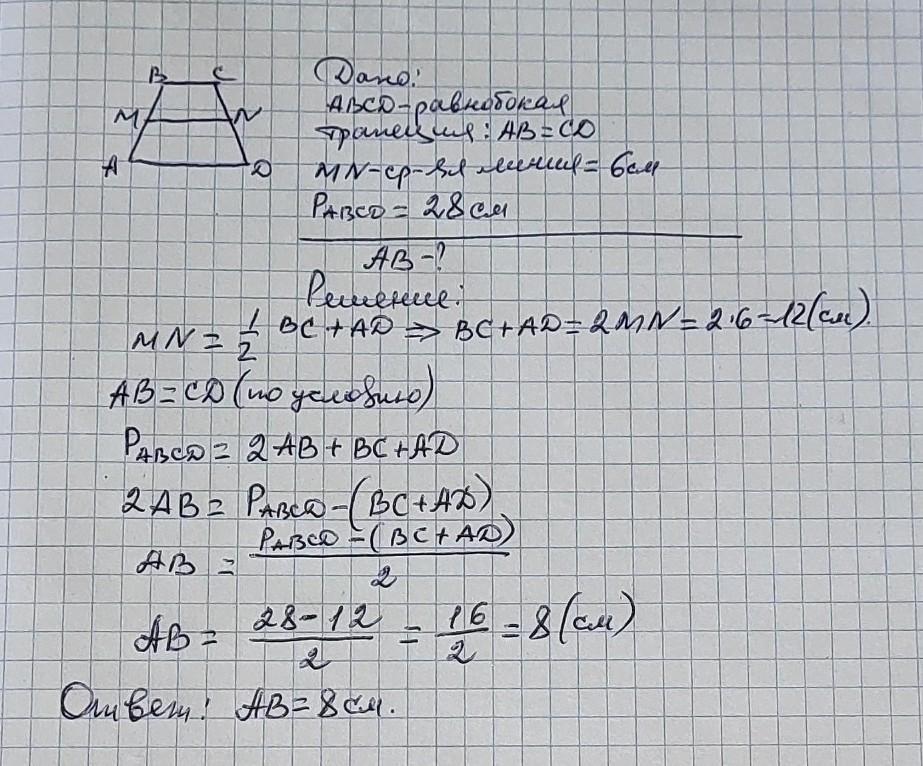 B C
M N
A D
Дано:
ABCD-равнобокая
трапеция: AB=CD
MN-ср-яя линия=6см
PABCD = 28см
AB-?
Решение:
MN = 1/2 BC+AD ⇒ BC+AD=2MN=2·6=12(см).
AB=CD(по условию)
PABCD = 2AB+BC+AD
2AB= PABCD-(BC+AD)
AB = PABCD-(BC+AD)/2
AB= 28-12/2 = 16/2 = 8(см)
Ответ: AB=8см.